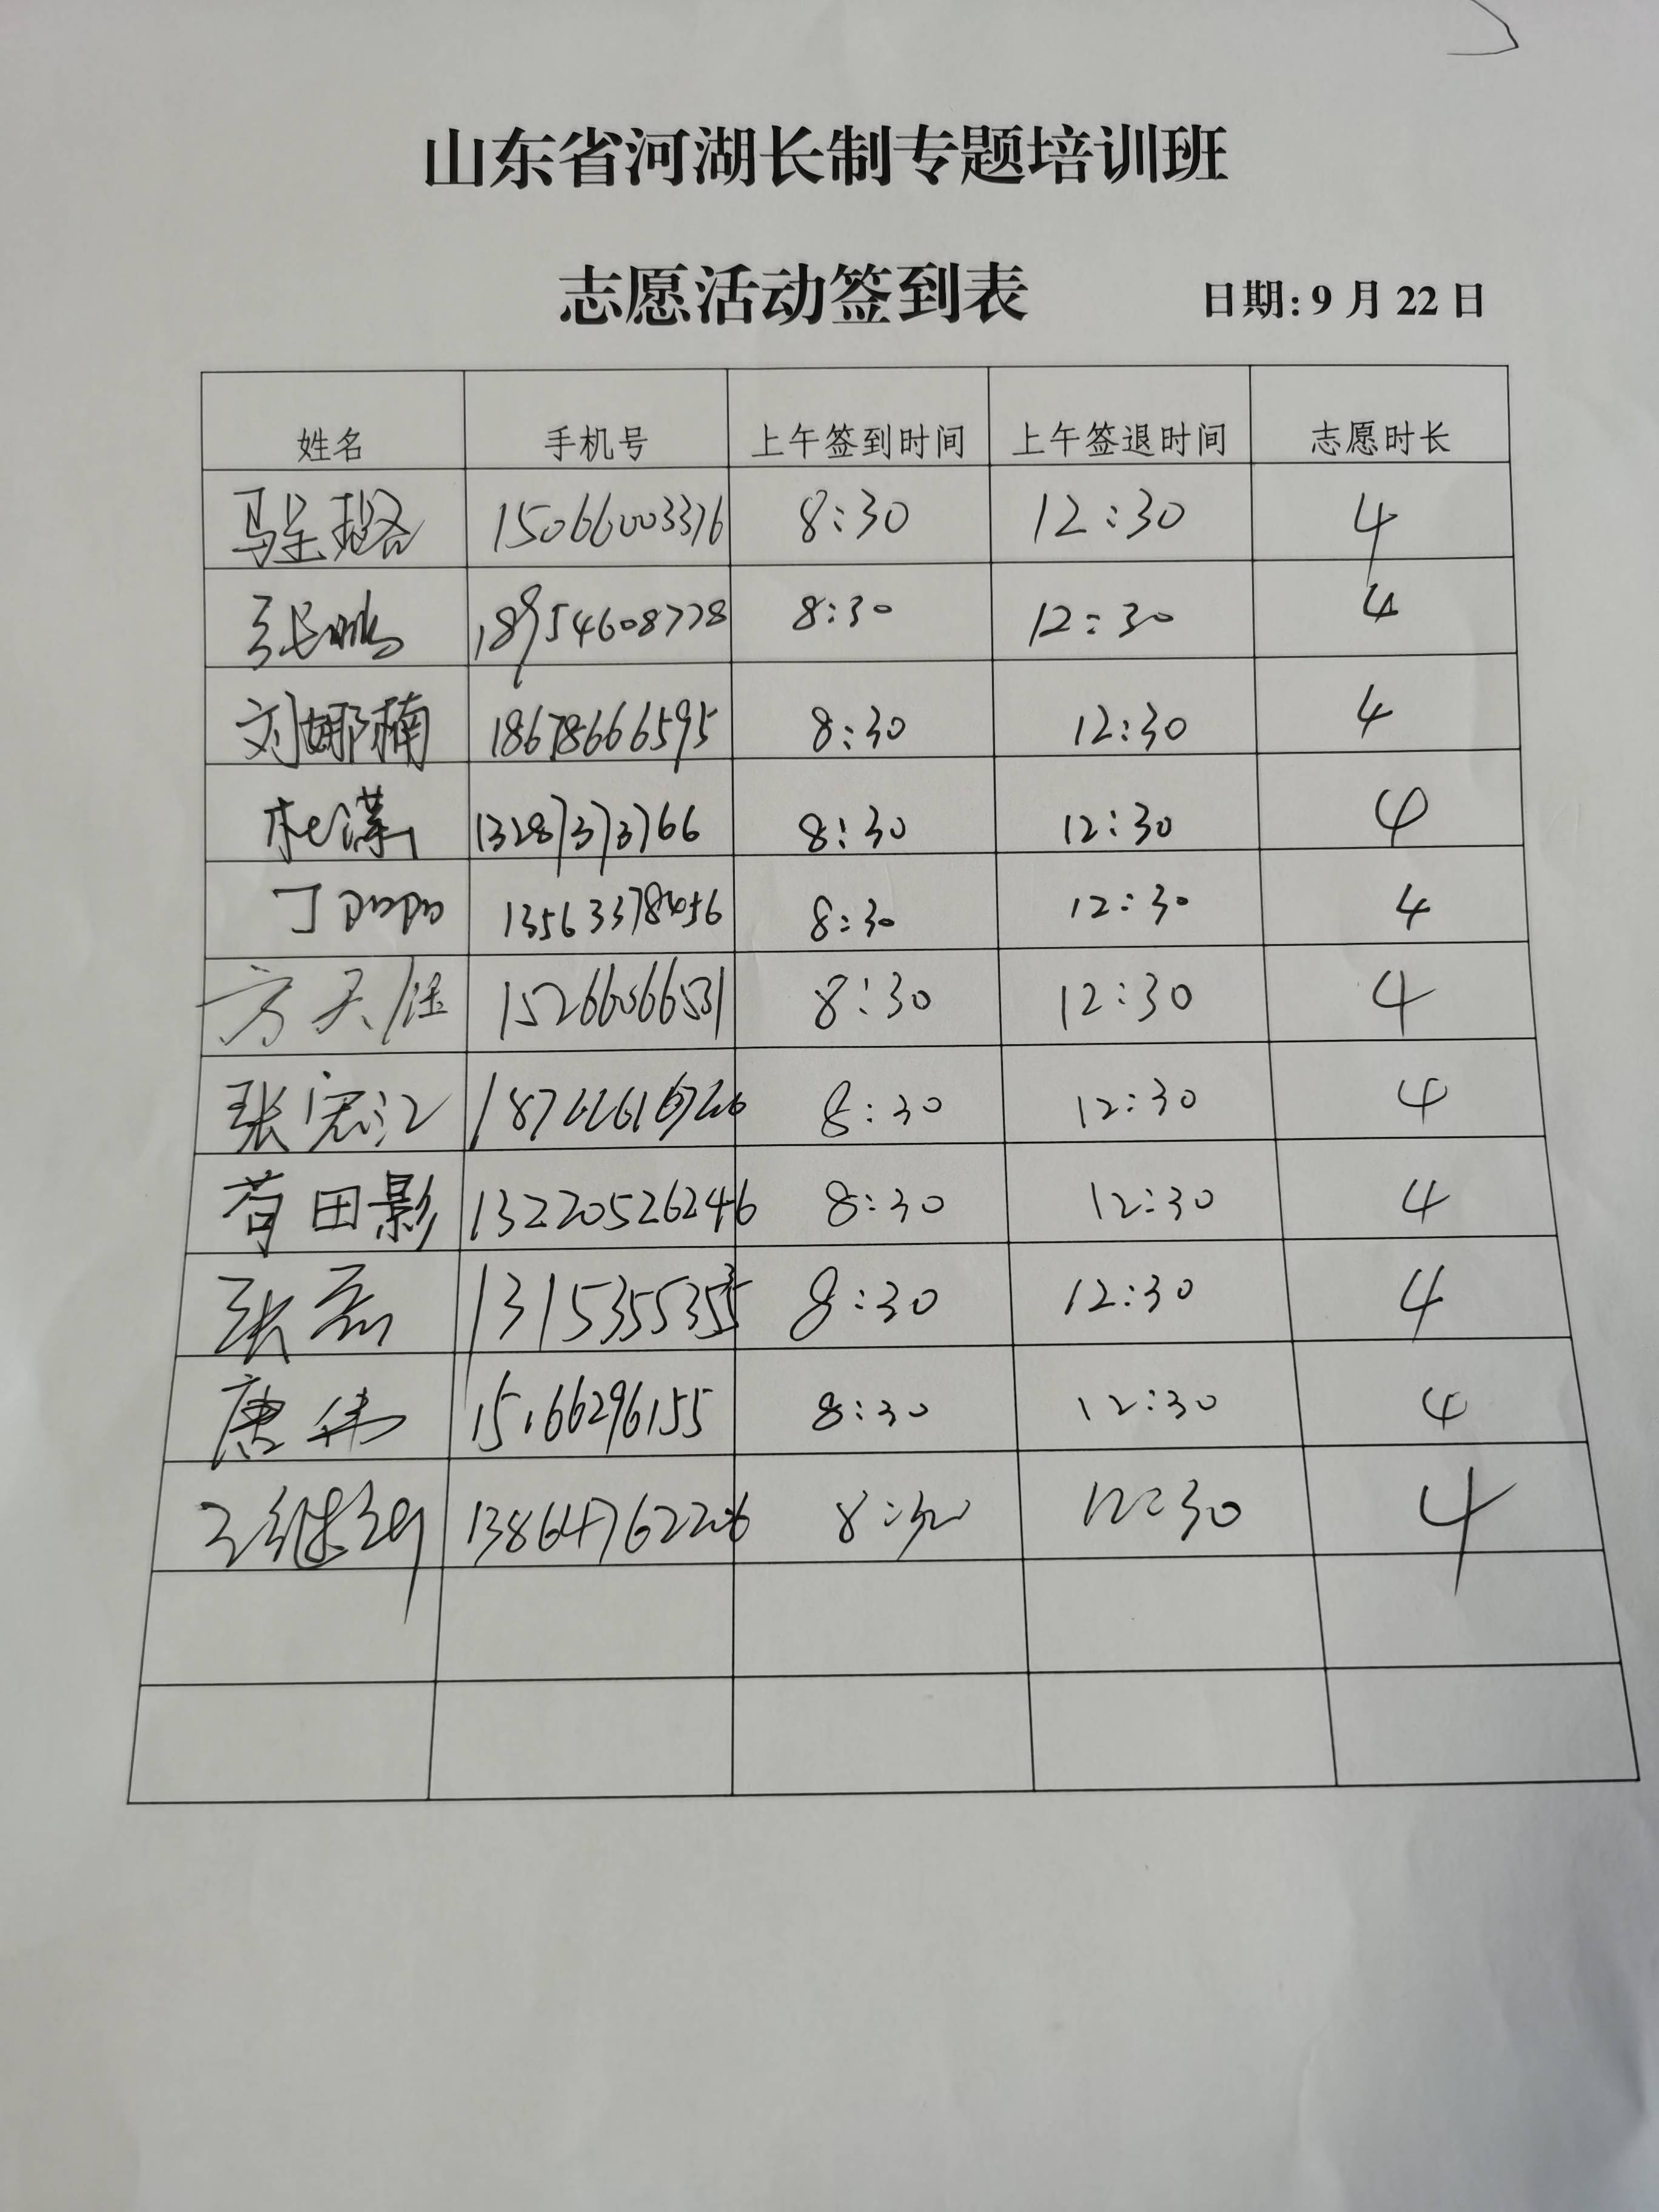 山东省河湖长制专题培训班
志愿活动签到表 日期:9月22日
姓名 手机号 上午签到时间 上午签退时间 志愿时长
马呈璐 15066003376 8:30 12:30 4
张鹏 18954608778 8:30 12:30 4
刘娜楠 18678666595 8:30 12:30 4
杜潇 13287373766 8:30 12:30 4
丁阳阳 13563378456 8:30 12:30 4
方天 15266066531 8:30 12:30 4
张宏江 8:30 12:30 4
苟田影 13220526246 8:30 12:30 4
张磊 13153553555 8:30 12:30 4
唐伟 15166296155 8:30 12:30 4
王继绍 13864762206 8:30 12:30 4